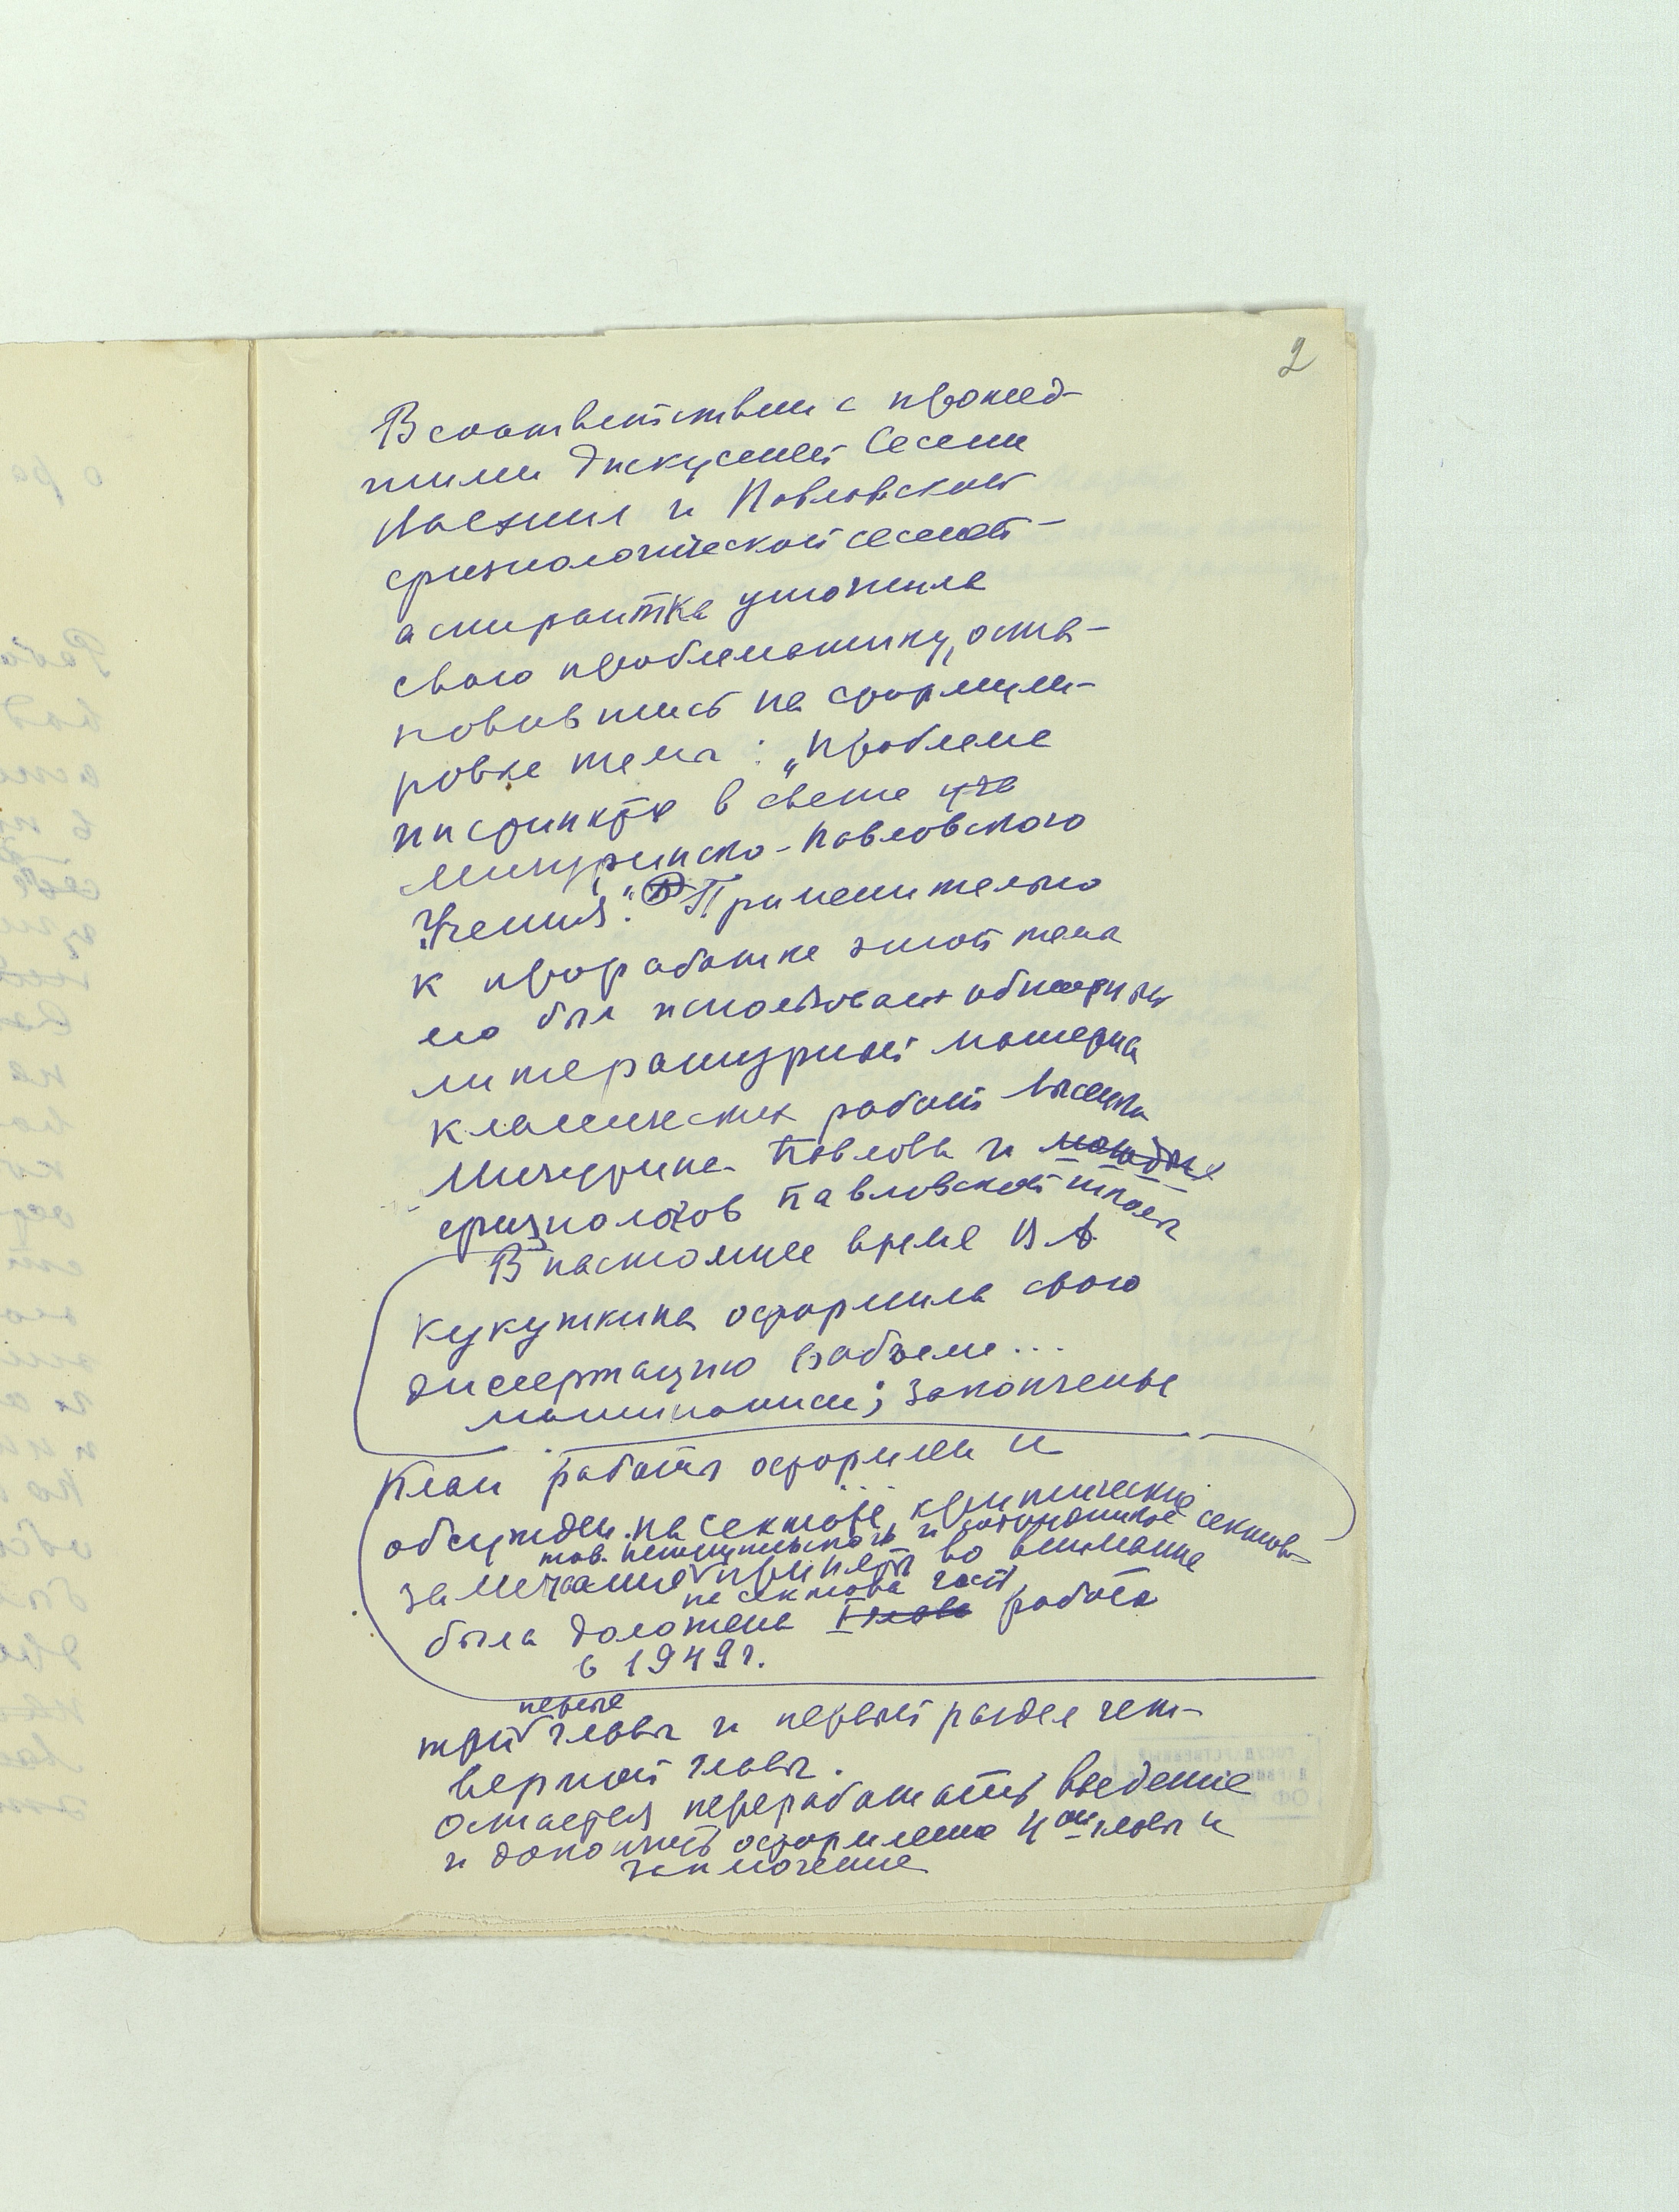 2
В соответствии с прошед-
шими дискуссией Сессии
Васхнил и Павловской
физиологической сессией –
аспирантка уточнила
свою проблематику, оста-
новившись на формули-
ровке темы: „Проблема
инстинкта в свете
Мичуринско-Павловского
Учения". Применительно
к проработке этой темы
ею был использован обширный
литературный материал
классических работ Лысенко
Мичурина Павлова и молодых
физиологов павловской школы
В настоящее время В А
Кукушкина оформила свою
диссертацию в объеме...
машинописи; законченые
План работы оформлен и
обсужден на секторе, критические
замечания приняты во внимание
на сектора часть
была доложена I глава работа
в 1949 г.
первые
три главы и первый раздел чет-
вертой главы.
Остается переработать введение
и докончить оформление 4ой главы и
заключение